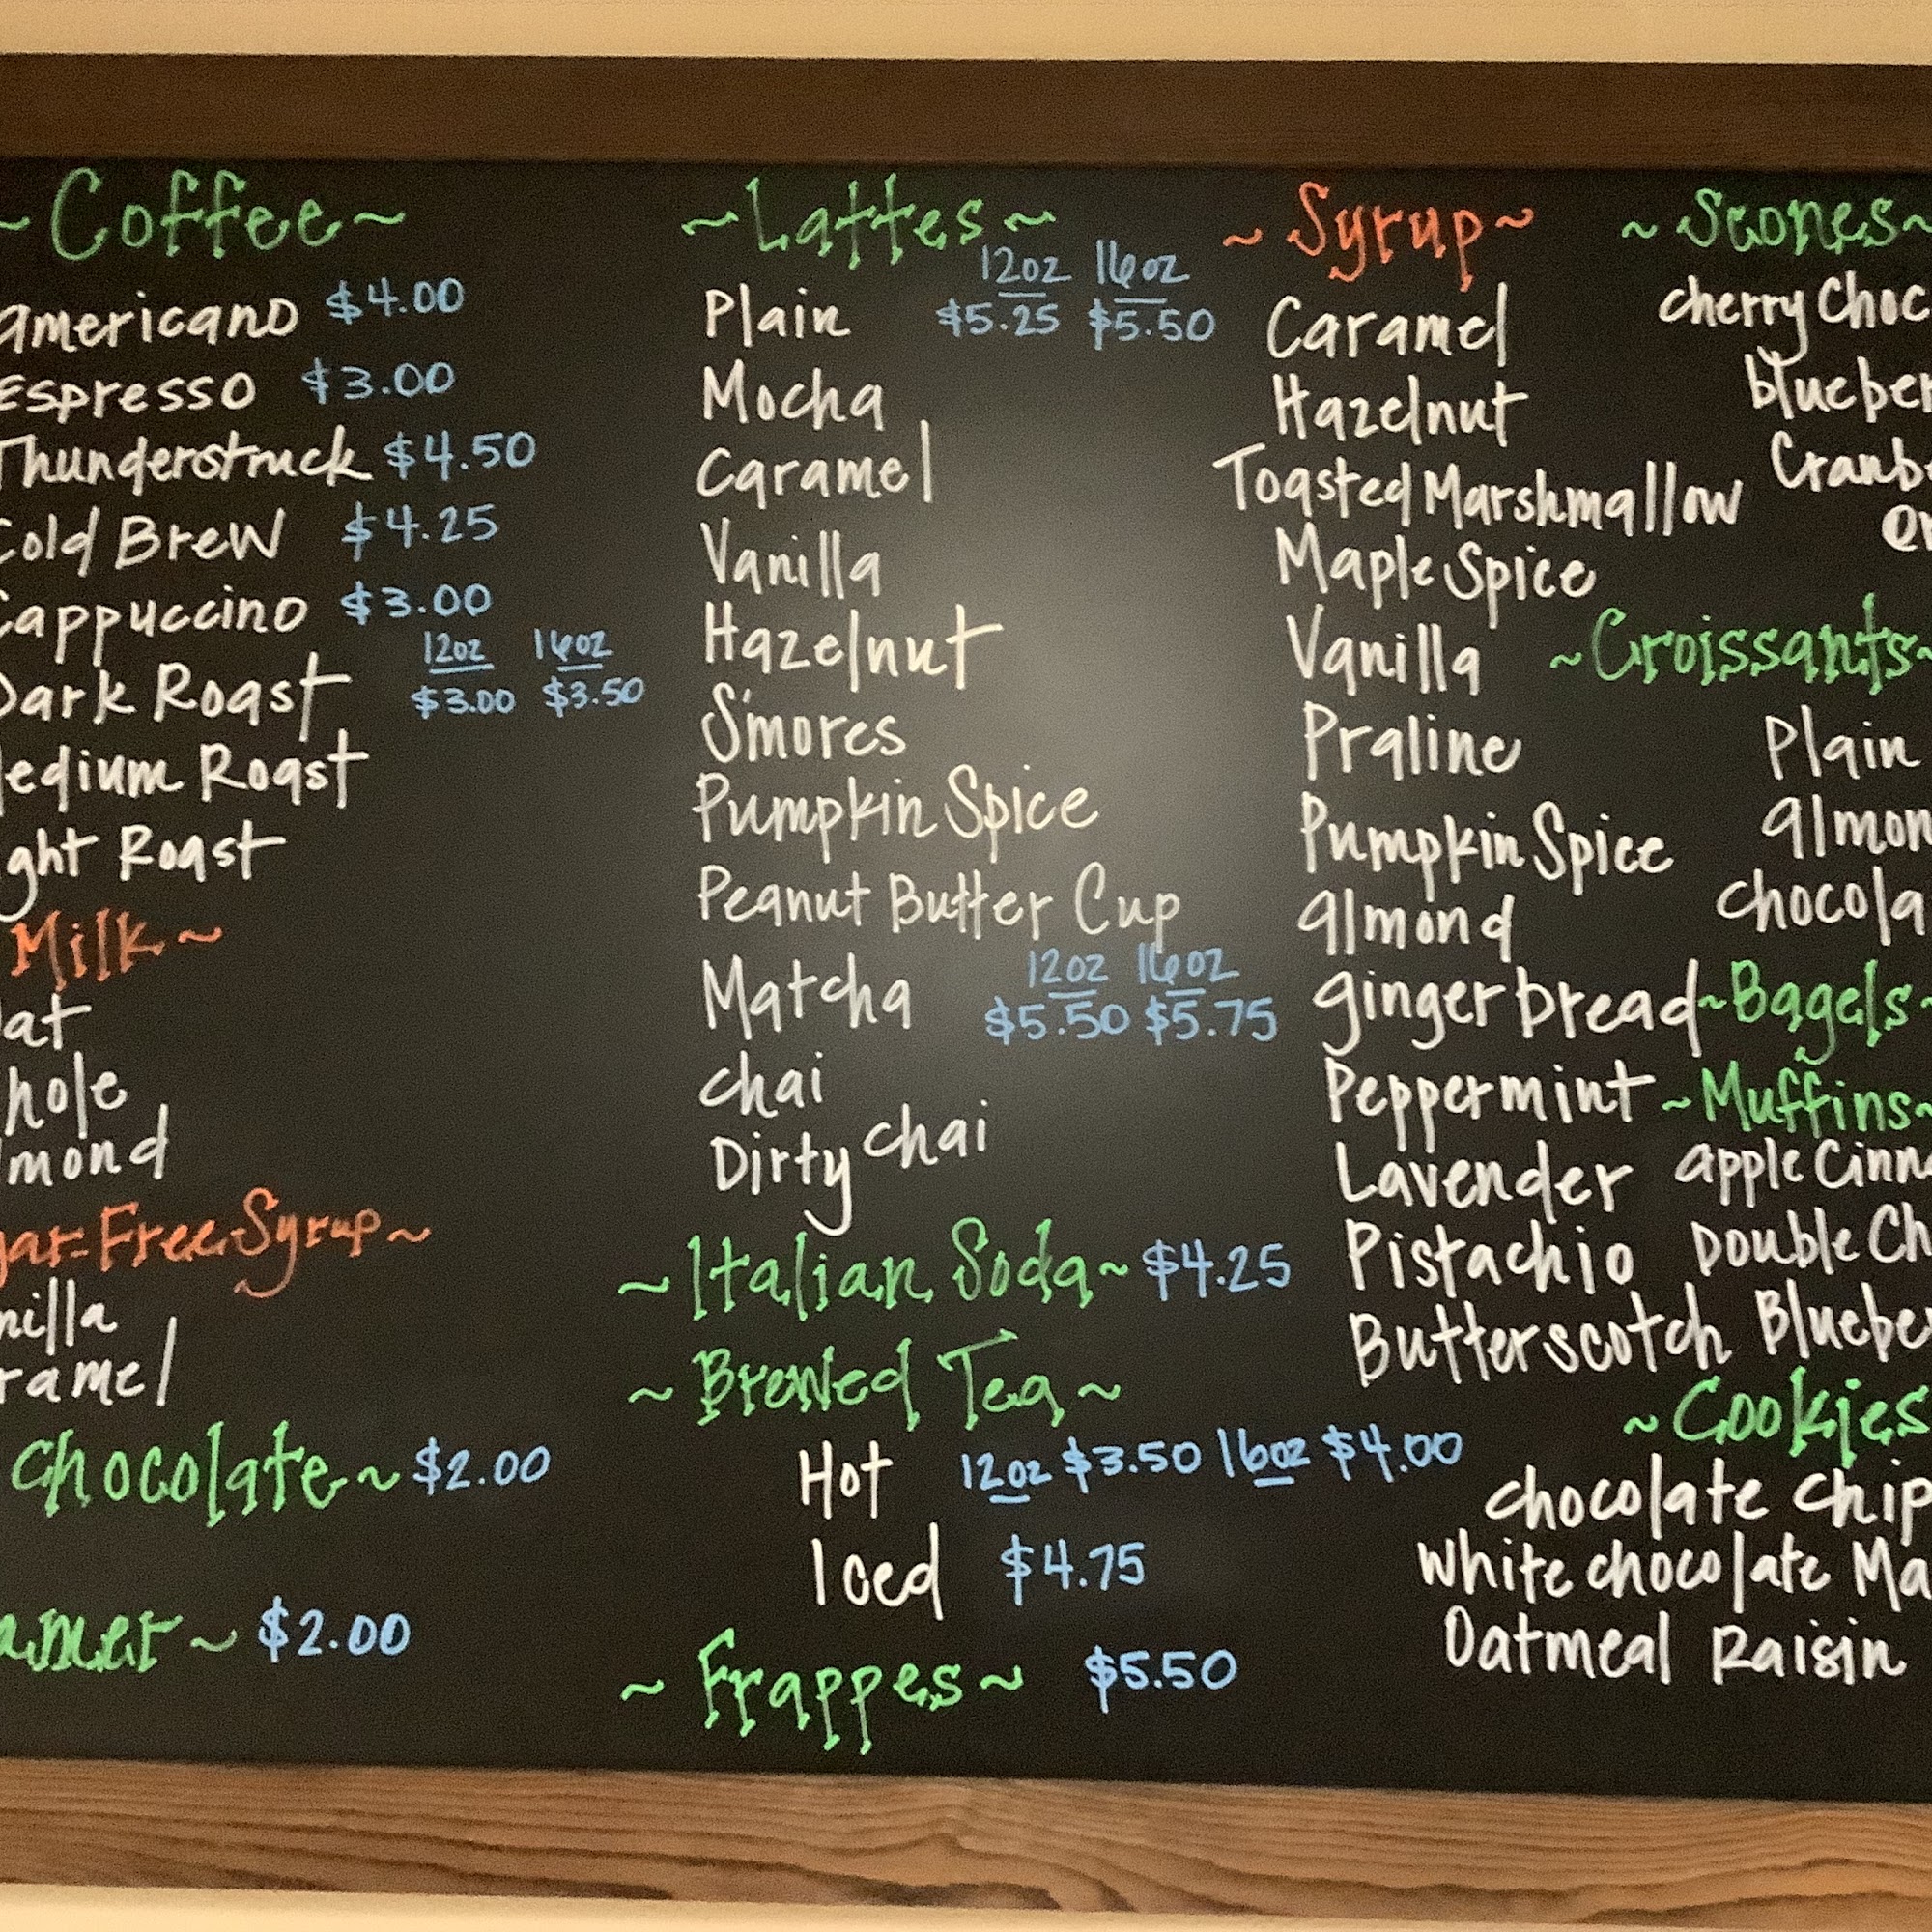 ~Coffee~
americano $4.00
Espresso $3.00
Thunderstruck $4.50
Cold Brew $4.25
Cappuccino $3.00
12oz 16oz
Dark Roast $3.00 $3.50
edium Roast
ght Roast
Milk~
at
hole
mond
gar-Free Syrup~
nilla
ramel
Chocolate~ $2.00
amer~ $2.00
~Lattes~
12oz 16oz
Plain $5.25 $5.50
Mocha
Caramel
Vanilla
Hazelnut
S'mores
Pumpkin Spice
Peanut Butter Cup
12oz 16oz
Matcha $5.50 $5.75
chai
Dirty chai
~Italian Soda~ $4.25
~Brewed Tea~
Hot 12oz $3.50 16oz $4.00
Iced $4.75
~Frappes~ $5.50
~Syrup~
Caramel
Hazelnut
Toasted Marshmallow
Maple Spice
Vanilla
Praline
Pumpkin Spice
almond
gingerbread
Peppermint
Lavender
Pistachio
Butterscotch
~Scones~
cherry Choc
blueber
Cranb
or
~Croissants~
Plain
almon
chocola
~Bagels~
~Muffins~
apple Cinna
Double Ch
Blueber
~Cookies
chocolate chip
white chocolate Ma
Oatmeal Raisin